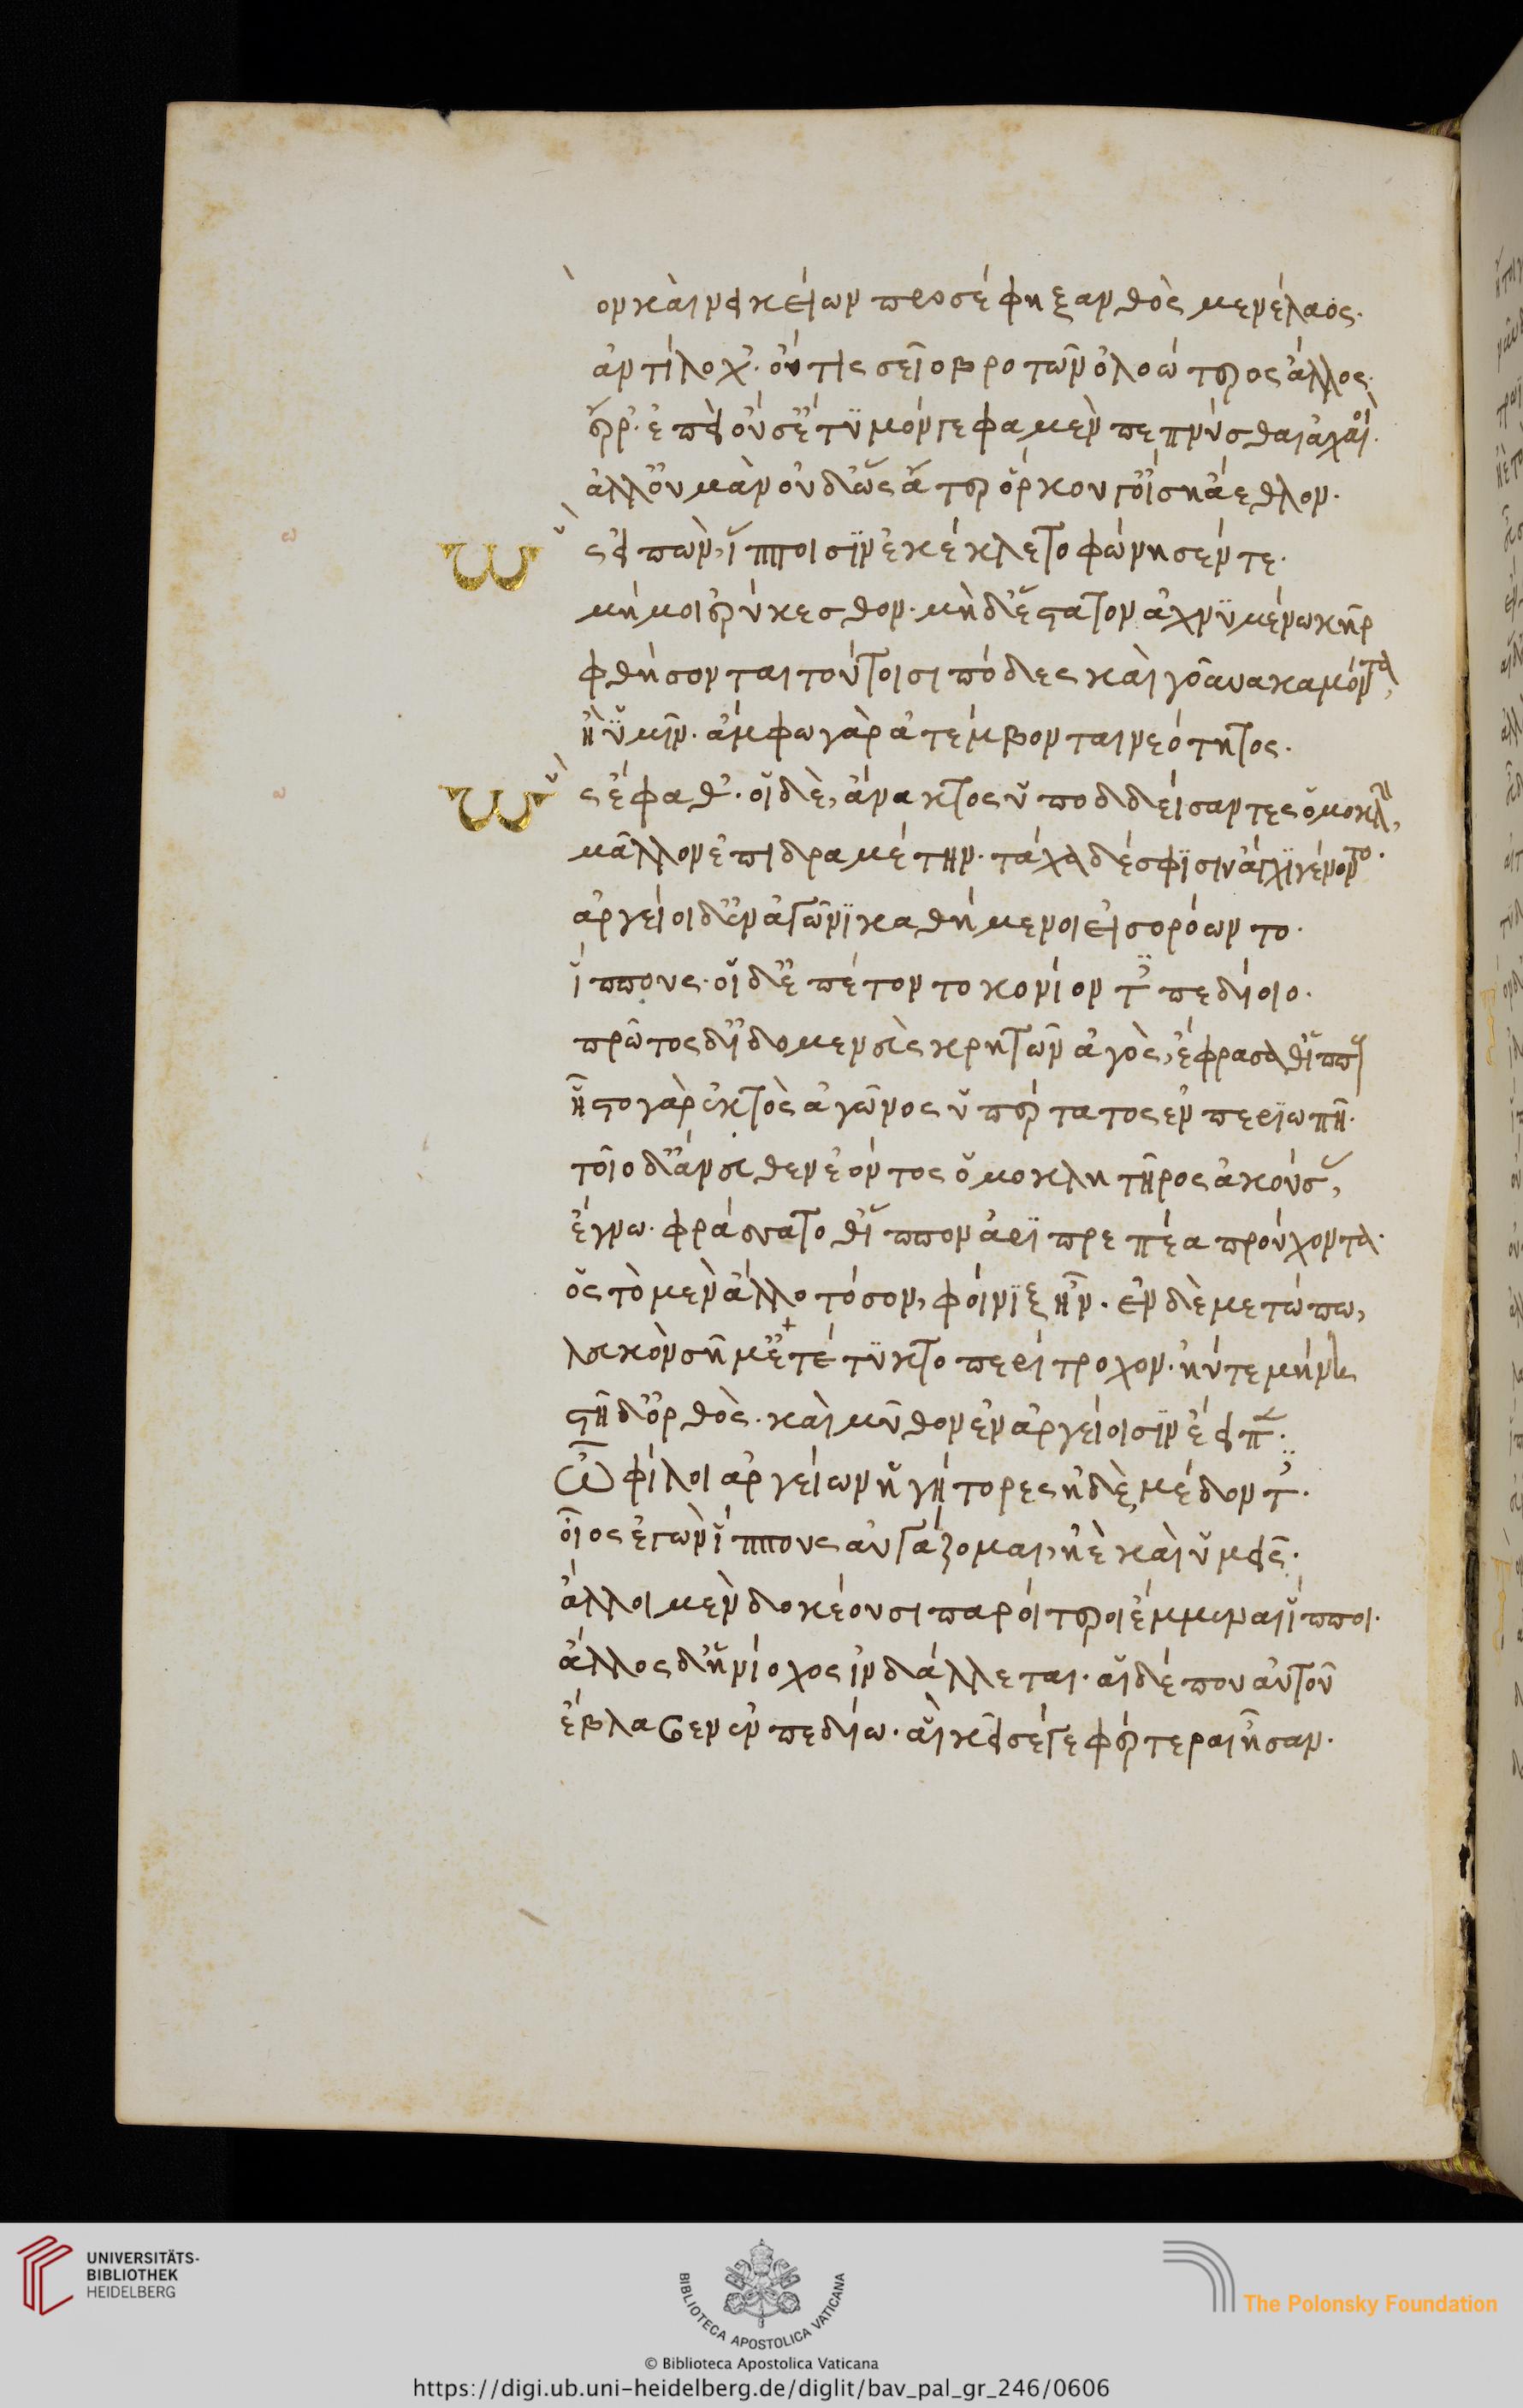 ὸν καὶ νεικείων προσέφη ξανθὸς μενέλαος.
ἀντίλοχ᾽. οὔτις σεῖο βροτῶν ὀλοώτερος ἄλλος.
ἔρρ᾽. ἐπεὶ οὔ σ᾽ ἔτυμόν γε φαμὲν πεπνύσθαι ἀχαιοί.
ἀλλ᾽ οὐ μὰν οὐδ᾽ ὧς ἄτερ ὅρκου γ᾽ οἴση ἄεθλον.
ὣς εἰπὼν, ἵπποισιν ἐκέκλετο φώνησέν τε.
μή μοι ἐρύκεσθον. μὴ δ᾽ ἕστατον ἀχνυμένω κῆρ
φθήσονται τούτοισι πόδες καὶ γοῦνα καμόντα,
ἢ ὑμῖν. ἄμφω γὰρ ἀτέμβονται νεότητος.
ὣς ἔφαθ᾽. οἱ δὲ, ἄνακτος ὑποδδείσαντες ὁμοκλὴν,
μᾶλλον ἐπιδραμέτην. τάχα δέ σφισιν ἄγχι γένοντο.
ἀργεῖοι δ᾽ ἐν ἀγῶνι καθήμενοι εἰσορόωντο.
ἵππους. οἱ δ᾽ ἐπέτοντο κονίοντες πεδίοιο.
πρῶτος δ᾽ ἰδομενεὺς κρητῶν ἀγὸς, ἐφράσαθ᾽ ἵππους
ἧστο γὰρ ἐκτὸς ἀγῶνος ὑπέρτατος ἐν περιωπῆ.
τοῖο δ᾽ ἄνευθεν ἐόντος ὁμοκλητῆρος ἀκούσας,
ἔγνω. φράσσατο δ᾽ ἵππον ἀριπρεπέα προύχοντα.
ὃς τὸ μὲν ἄλλο τόσον, φοίνιξ ἦν. ἐν δὲ μετώπω,
λευκὸν σῆμ᾽ ἐτέτυκτο περίτροχον. ἠύτε μήνη
στῆ δ᾽ ὀρθὸς. καὶ μῦθον ἐν ἀργείοισιν ἔειπεν.
Ὦ φίλοι ἀργείων ἡγήτορες ἠδὲ μέδοντες.
οἶος ἐγὼν ἵππους αὐγάζομαι, ἠὲ καὶ ὑμεῖς.
ἄλλοι μὲν δοκέουσι παροίτεροι ἔμμεναι ἵπποι.
ἄλλος δ᾽ ἡνίοχος ἰνδάλλεται. αἱ δέ που αὐτοῦ
ἔβλαβεν ἐν πεδίω. αἳ κεῖσέ γε φέρτεραι ἦσαν.
UNIVERSITÄTS-
BIBLIOTHEK
HEIDELBERG
BIBLIOTECA APOSTOLICA VATICANA
The Polonsky Foundation
© Biblioteca Apostolica Vaticana
https://digi.ub.uni-heidelberg.de/diglit/bav_pal_gr_246/0606